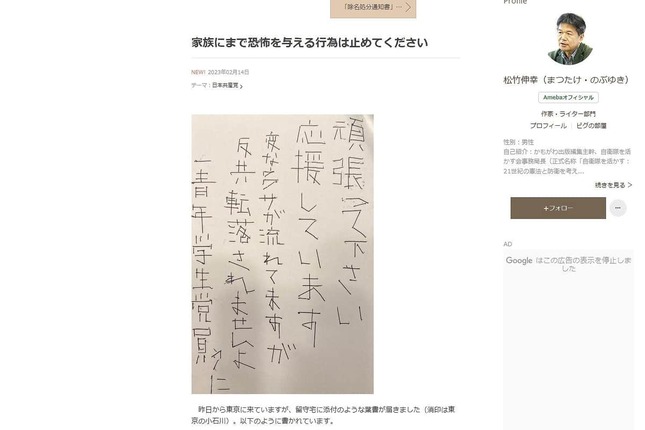 「除名処分通知書」…
家族にまで恐怖を与える行為は止めてください
NEW! 2023年02月14日
テーマ：日本共産党
頑張って下さい
応援しています
変なウワサが流れてますが
反共転落されませんよ
一青年学生党員
昨日から東京に来ていますが、留守宅に添付のような葉書が届きました（消印は東
京の小石川）。以下のように書かれています。
Profile
松竹伸幸（まつたけ・のぶゆき）
Amebaオフィシャル
作家・ライター部門
プロフィール｜ピグの部屋
性別：男性
自己紹介：かもがわ出版編集主幹、自衛隊を活
かす会事務局長（正式名称「自衛隊を活かす：
21世紀の憲法と防衛を考え...
続きを見る
＋フォロー
AD
Google はこの広告の表示を停止しま
した